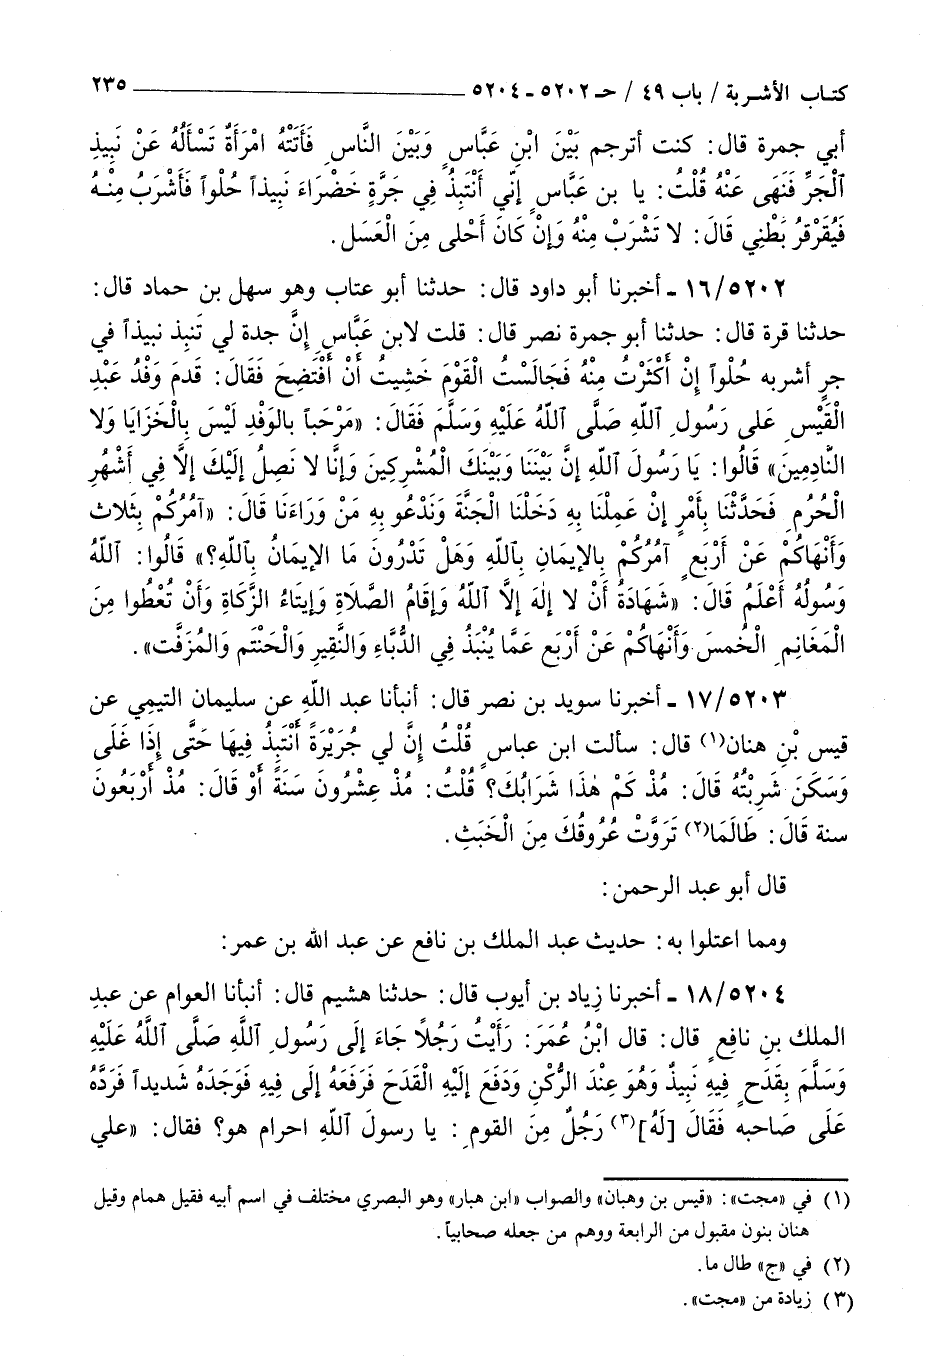 كتاب الأشربة / باب ٤٩ / حـ ٥٢٠٢ - ٥٢٠٤ ٢٣٥
أبي جمرة قال: كنت أترجم بَيْنَ ابْنِ عَبَّاسٍ وَبَيْنَ النَّاسِ فَأَتَتْهُ امْرَأَةٌ تَسْأَلُهُ عَنْ نَبِيذِ
ٱلْجَرِّ فَنَهَى عَنْهُ قُلْتُ: يا بن عَبَّاسٍ إنِّي أَنْتَبِذُ فِي جَرَّةٍ خَضْرَاءَ نَبِيذاً حُلْواً فَأَشْرَبُ مِنْـهُ
فَيُقَرْقِرُ بَطْنِي قَالَ: لا تَشْرَبْ مِنْهُ وَإنْ كَانَ أَحْلى مِنَ الْعَسَلِ.
١٦/٥٢٠٢ - أخبرنا أبو داود قال: حدثنا أبو عتاب وهو سهل بن حماد قال:
حدثنا قرة قال: حدثنا أبو جمرة نصر قال: قلت لابن عَبَّاسٍ إنَّ جدة لي تَنبِذ نبيذاً في
جرٍ أشربه حُلْواً إنْ أَكْثَرْتُ مِنْهُ فَجَالَسْتُ الْقَوْمَ خَشِيتُ أَنْ أَفْتَضِحَ فَقَالَ: قَدِمَ وَفْدُ عَبْدِ
الْقَيْسِ عَلى رَسُولِ ٱللَّهِ صَلَّى ٱللَّهُ عَلَيْهِ وَسَلَّمَ فَقَالَ: «مَرْحَباً بالوَفْدِ لَيْسَ بِالْخَزَايَا وَلا
النَّادِمِينَ» قَالُوا: يَا رَسُولَ ٱللَّهِ إنَّ بَيْنَنَا وَبَيْنَكَ الْمُشْرِكِينَ وَإنَّا لا نَصِلُ إلَيْكَ إلاَّ فِي أَشْهُرِ
الْحُرُمِ فَحَدَّثْنَا بِأَمْرٍ إنْ عَمِلْنَا بِهِ دَخَلْنَا الْجَنَّةَ وَنَدْعُو بِهِ مَنْ وَرَاءَنَا قَالَ: «آمُرُكُمْ بِثَلاثٍ
وَأَنْهَاكُمْ عَنْ أَرْبَعٍ آمُرُكُمْ بالإيمَانِ بِٱللَّهِ وَهَلْ تَدْرُونَ مَا الإيمَانُ بِٱللَّهِ؟» قَالُوا: ٱللَّهُ
وَسُولُهُ أَعْلَمُ قَالَ: «شَهَادَةُ أَنْ لا إلهَ إلاَّ ٱللَّهُ وَإقَامُ الصَّلَاةِ وَإيتَاءُ الزَّكَاةِ وَأَنْ تُعْطُوا مِنَ
الْمَغَانِمِ الْخُمسَ وَأَنْهَاكُمْ عَنْ أَرْبَعٍ عَمَّا يُنْبَذُ فِي الدُّبَّاءِ وَالنَّقِيرِ وَالْحَنْتَمِ وَالمُزَفَّت».
١٧/٥٢٠٣ - أخبرنا سويد بن نصر قال: أنبأنا عبد اللَّهِ عن سليمان التيمي عن
قيس بْنِ هنان(١) قال: سألت ابن عباسٍ قُلْتُ إنَّ لي جُرَيْرَةً أَنْتَبِذُ فِيهَا حَتَّى إذَا غَلَى
وَسَكَنَ شَرِبْتُهُ قَالَ: مُذْ كَمْ هٰذَا شَرَابُكَ؟ قُلْتُ: مُذْ عِشْرُونَ سَنَةً أَوْ قَالَ: مُذْ أَرْبَعُونَ
سنة قَالَ: طَالَمَا(٢) تَرَوَّتْ عُرُوقُكَ مِنَ الْخَبَثِ.
قال أبو عبد الرحمن:
ومما اعتلوا به: حديث عبد الملك بن نافع عن عبد الله بن عمر:
١٨/٥٢٠٤ - أخبرنا زياد بن أيوب قال: حدثنا هشيم قال: أنبأنا العوام عن عبدِ
الملك بنِ نافِعٍ قال: قال ابْنُ عُمَرَ: رَأَيْتُ رَجُلًا جَاءَ إلَى رَسُولِ ٱللَّهِ صَلَّى ٱللَّهُ عَلَيْهِ
وَسَلَّمَ بِقَدَحٍ فِيهِ نَبِيذٌ وَهُوَ عِنْدَ الرُّكْنِ وَدَفَعَ إلَيْهِ الْقَدَحَ فَرَفَعَهُ إلَى فِيهِ فَوَجَدَهُ شَدِيداً فَرَدَّهُ
عَلَى صَاحبِهِ فَقَالَ [لَهُ](٣) رَجُلٌ مِنَ القومِ: يا رسولَ ٱللَّهِ احرام هو؟ فقال: «علي
(١) في «مجت»: «قيس بن وهبان» والصواب «ابن هبار» وهو البصري مختلف في اسم أبيه فقيل همام وقيل
هنان بنون مقبول من الرابعة ووهم من جعله صحابياً.
(٢) في «ج» طال ما.
(٣) زيادة من «مجت».